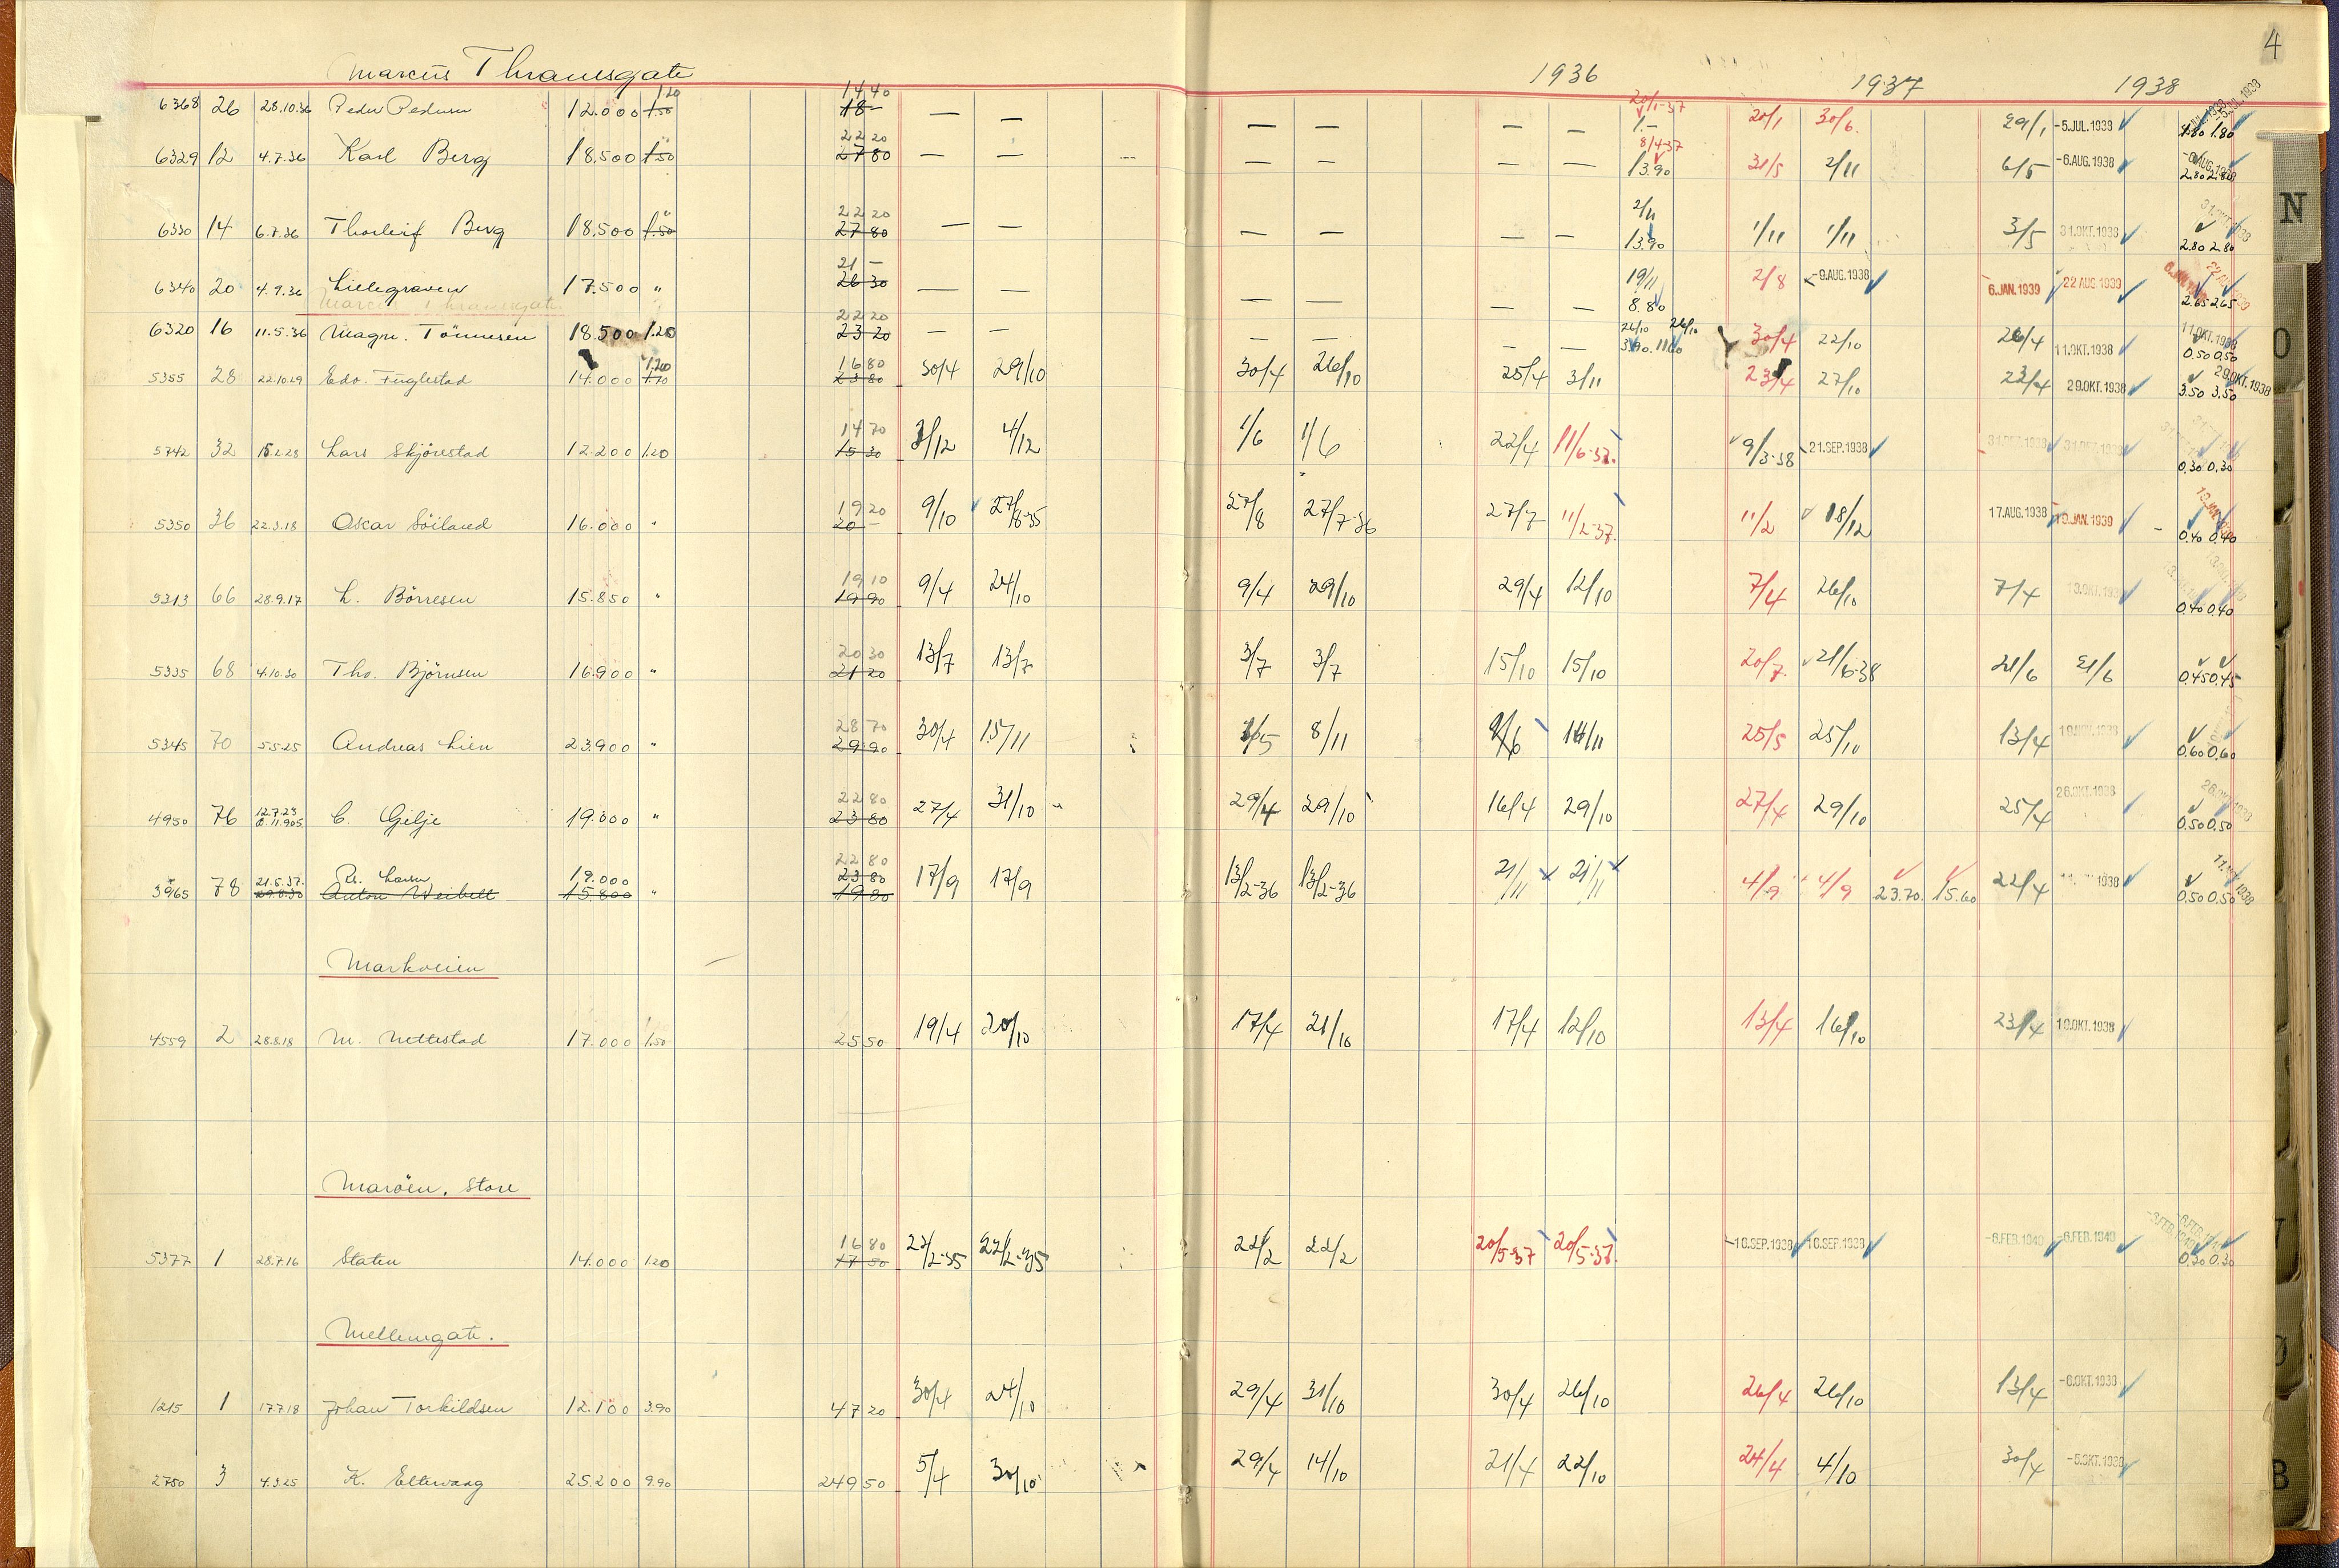 4
Marcus Thranesgate 1936 1937 1938
14 40 20/1-37
6368 26 28.10.36 Peder Pedersen 12.000 1.50 1.20 18 - — — — — — — 1.- 20/1 30/6. 29/1 -5.JUL.1938 1.80 1.80
22 20 8/4-37
6329 12 4.7.36 Karl Berg 18.500 1.50 " 27 80 — — — — — — 13.90 31/5 2/11 6/5 -6.AUG.1938 2.80 2.80
22 20 2/11
6330 14 6.7.36 Thorleif Berg 18.500 1.50 " 27 80 — — — — — — 13.90 1/11 1/11 3/5 31.OKT.1938 2.80 2.80
21 - 19/11
6340 20 4.9.36 Lillegraven 17.500 " 26 30 — — — — — — 8.80 2/8 -9.AUG.1938 6.JAN.1939 22 AUG.1939 2.65 2.65
Marcus Thranesgate
22 20 26/10 26/10
6320 16 11.5.36 Magn. Tönnesen 18.500 1.20 23 20 — — — — — — 3.90 11.60 30/4 22/10 26/4 11.OKT.1938 0.50 0.50
1.20 16 80
5355 28 22.10.29 Edv. Fuglestad 14.000 1.70 23 80 30/4 29/10 30/4 26/10 25/4 3/11 23/4 27/10 23/4 29.OKT.1938 3.50 3.50
14 70
5742 32 15.2.28 Lars Skjørestad 12.200 1.20 15 30 3/12 4/12 1/6 1/6 22/4 11/6-37. 9/3-38 21.SEP.1938 31.DEZ.1938 0.30 0.30
19 20
5350 36 22.3.18 Oscar Söiland 16.000 " 20 - 9/10 27/8-35 27/8 27/7-36 27/7 11/2-37. 11/2 18/12 17.AUG.1938 19.JAN.1939 0.40 0.40
19 10
5313 66 28.9.17 L. Börresen 15.850 " 19 90 9/4 24/10 9/4 29/10 29/4 12/10 7/4 26/10 7/4 13.OKT.193 0.40 0.40
20 30
5335 68 4.10.30 Tho. Björnsen 16.900 " 21 20 13/7 13/7 3/7 3/7 15/10 15/10 20/7. 21/6-38 21/6 21/6 0.45 0.45
28 70
5345 70 5.5.25 Andreas Lien 23.900 " 29 90 30/4 15/11 8/11 9/6 14/11 25/5 25/10 13/4 19.NOV.1938 0.60 0.60
22 80
4950 76 12.7.23 8.11.905 C. Gilje 19.000 " 23 80 27/4 31/10 29/4 29/10 16/4 29/10 27/4 29/10 25/4 26.OKT.1938 0.50 0.50
22 80
21.5.37. 19.000 23 80
3965 78 29.8.30 Anton Weibell 15.800 " 19 80 17/9 17/9 13/2-36 13/2-36 21/11 21/11 4/9 4/9 23.70. 15.60 22/4 1938 0.50 0.50
Markveien
4559 2 28.8.18 M. Nettestad 17.000 1.50 25 50 19/4 20/10 17/4 21/10 17/4 12/10 13/4 16/10 23/4 10.OKT.1938
Marøen, Store
16 80
5377 1 28.7.16 Staten 14.000 1.20 17 50 22/2-35 22/2-35 22/2 22/2 20/5-37 20/5-37. -16.SEP.1938 16.SEP.1938 -6.FEB.1940 -6.FEB.1940 0.30 0.30
Mellemgate.
1215 1 17.7.18 Johan Torkildsen 12.100 3.90 47 20 30/4 24/10 29/4 31/10 30/4 26/10 26/4 26/10 13/4 -6.OKT.1938
2750 3 4.3.25 K. Eltervaag 25.200 9.90 249 50 5/4 30/10 29/4 14/10 21/4 22/10 24/4 4/10 30/4 -5.OKT.1938
N
O
Ø